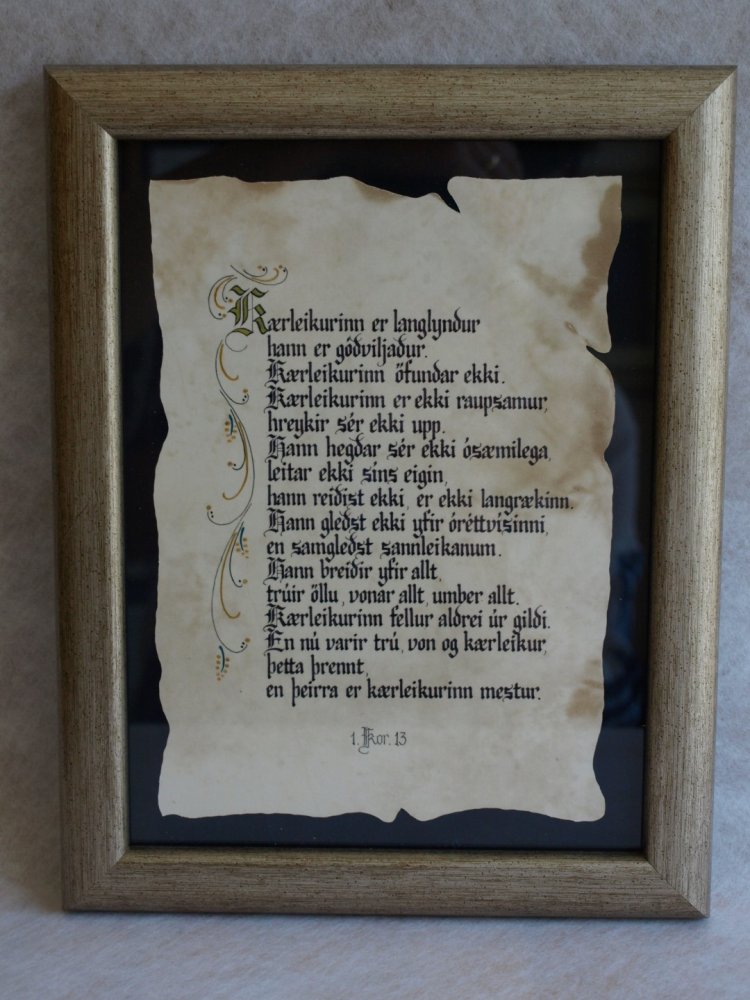 Kærleikurinn er langlyndur
hann er góðviljaður.
Kærleikurinn öfundar ekki.
Kærleikurinn er ekki raupsamur,
hreykir sér ekki upp.
Hann hegðar sér ekki ósæmilega,
leitar ekki síns eigin,
hann reiðist ekki, er ekki langrækinn.
Hann gleðst ekki yfir óréttvísinni,
en samgleðst sannleikanum.
Hann breiðir yfir allt,
trúir öllu, vonar allt, umber allt.
Kærleikurinn fellur aldrei úr gildi.
En nú varir trú, von og kærleikur,
þetta þrennt,
en þeirra er kærleikurinn mestur.
1. Kor. 13